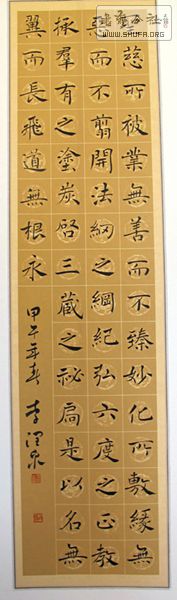 WWW.SHUFA.ORG
慈所被業無善而不臻妙化所敷緣無
惡而不剪開法網之綱紀弘六度之正教
拯羣有之塗炭啓三藏之祕扃是以名無
翼而長飛道無根永
甲午年春 李泉